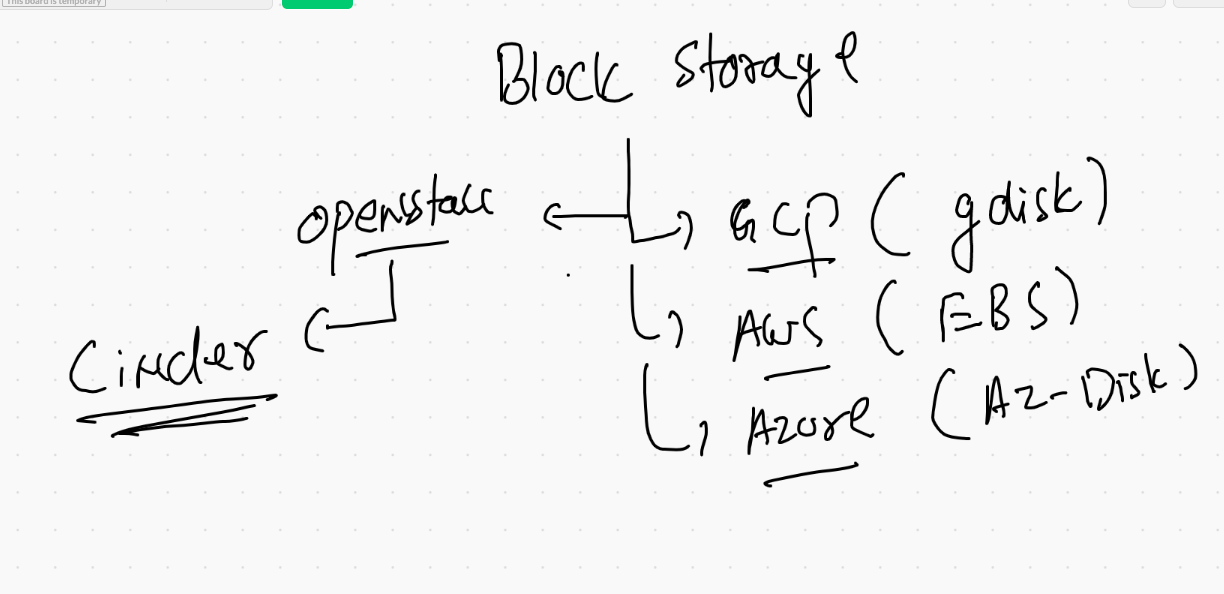 This board is temporary
Block storage
openstack
GCP ( gdisk )
AWS ( EBS )
Cinder
Azore ( Az-Disk )